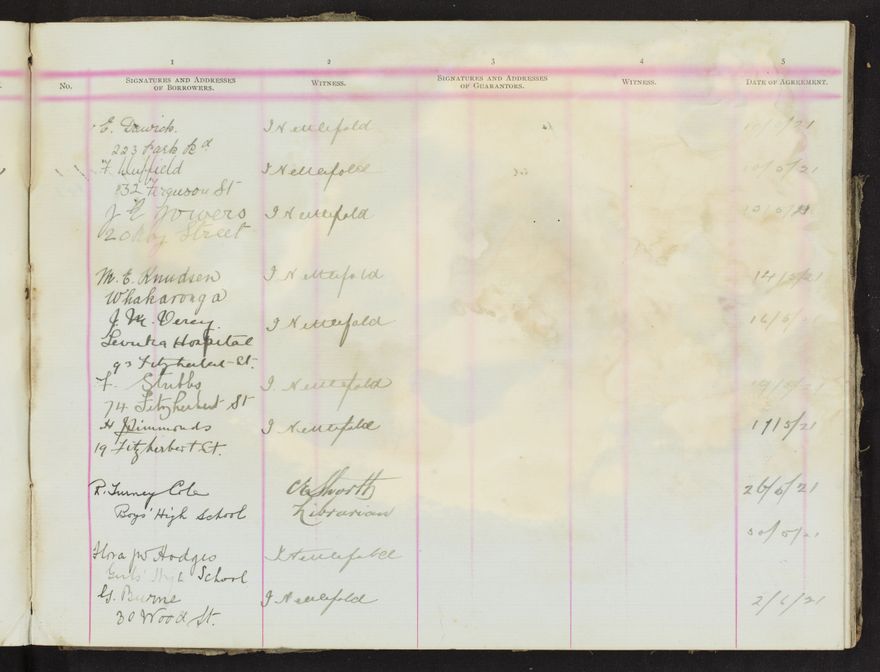 1 2 3 4 5
No. SIGNATURES AND ADDRESSES OF BORROWERS. WITNESS. SIGNATURES AND ADDRESSES OF GUARANTORS. WITNESS. DATE OF AGREEMENT.
E. Dawick. I Nettlefold 10/5/21
223 Park Rd
F. Duffield I Nettlefold 10/5/21
132 Ferguson St
J E Bowers I Nettlefold 10/5/21
20 Street
M. E. Knudsen I Nettlefold 14/5/21
Whakaronga
J. M. Verey. I Nettlefold 16/5/21
Levuka Hospital
93 Fitzherbert St.
F. Stubbs I. Nettlefold 19/5/21
74 Fitzherbert St
H Simmonds I Nettlefold 19/5/21
19 Fitzherbert St.
R. Gurney Cole 26/5/21
Boys' High School Librarian
30/5/21
Flora W Hodges I Nettlefold
Girls' High School
G. Burne I Nettlefold 2/6/21
30 Wood St.